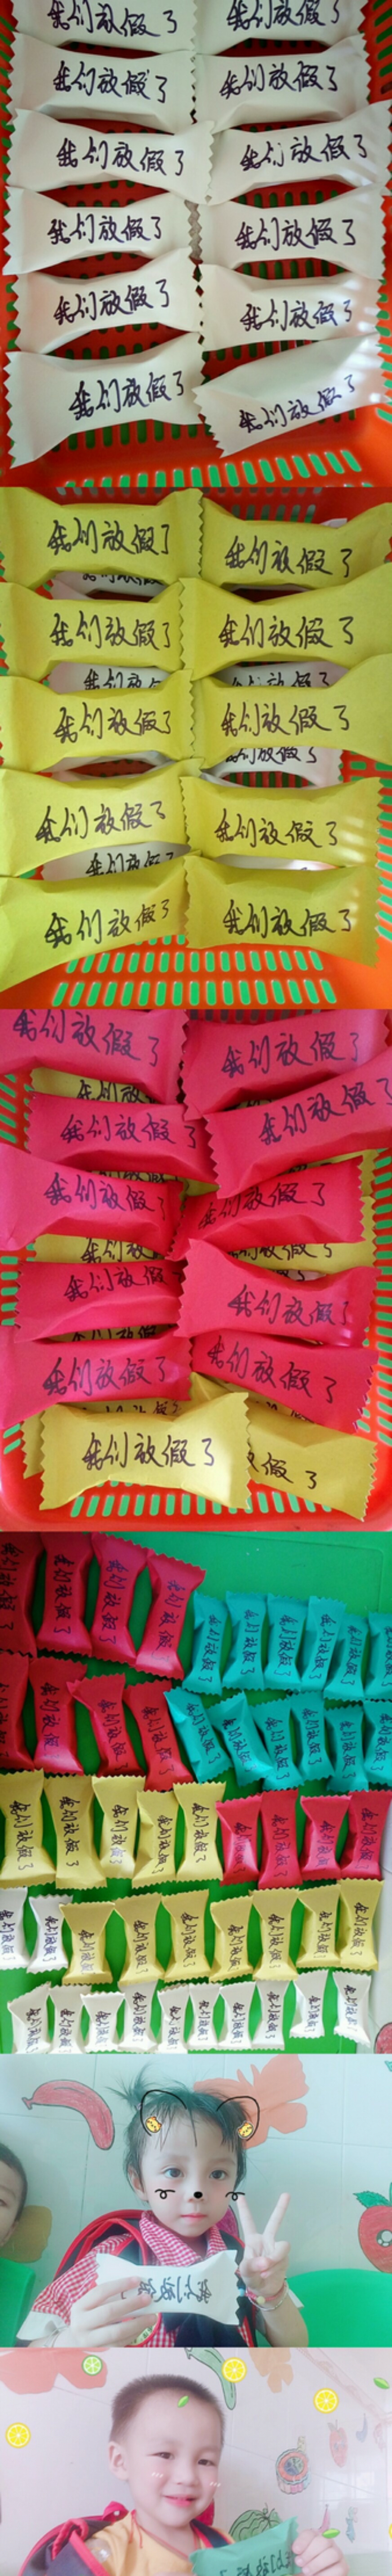 我们放假了
我们放假了
我们放假了
我们放假了
我们放假了
我们放假了
我们放假了
我们放假了
我们放假了
我们放假了
我们放假了
我们放假了
我们放假了
我们放假了
我们放假了
我们放假了
我们放假了
我们放假了
我们放假了
我们放假了
我们放假了
我们放假了
我们放假了
我们放假了
我们放假了
我们放假了
我们放假了
我们放假了
我们放假了
我们放假了
我们放假了
我们放假了
我们放假了
假了
我们放假了
我们放假了
我们放假了
我们放假了
我们放假了
我们放假了
我们放假了
我们放假了
我们放假了
我们放假了
我们放假了
我们放假了
我们放假了
我们放假了
我们放假了
我们放假了
我们放假了
我们放假了
我们放假了
我们放假了
我们放假了
我们放假了
我们放假了
我们放假了
我们放假了
我们放假了
我们放假了
我们放假了
我们放假了
我们放假了